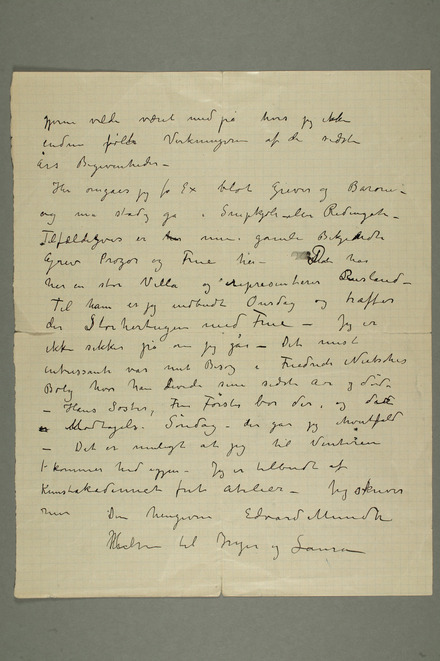 gjerne vilde været med på hvis jeg ikke
endnu følte Virkningerne af de sidste
års Begivenheder –
Her omgaes jeg fo Ex blot Grever og Baroner –
og må stadig gå i Smokgh eller Redingote –
Tilfældigvis er min gamle Bekjendte
Grev Prozor og Frue her – Han har
her en stor Villa og representerer Rusland –
Til ham er jeg indbudt Onsdag og træffer
der Storhertugen med Frue – Jeg er
ikke sikker på om jeg går – Det mest
intressante var mit Besøg i Friedrich Nietsches
Bolig hvor han levede sine sidste Aar og døde
– Hans Søster, Fru Förster bor der, og
Modtagels. Søndag – der gar jeg
– Det er muligt at jeg til Vinteren
kommer hid igjen – Jeg er tilbudt af
Kunstakademiet frit Atelier – Jeg skriver
mer Din hengivne Edvard Munch
Hilsen til Inger og Laura